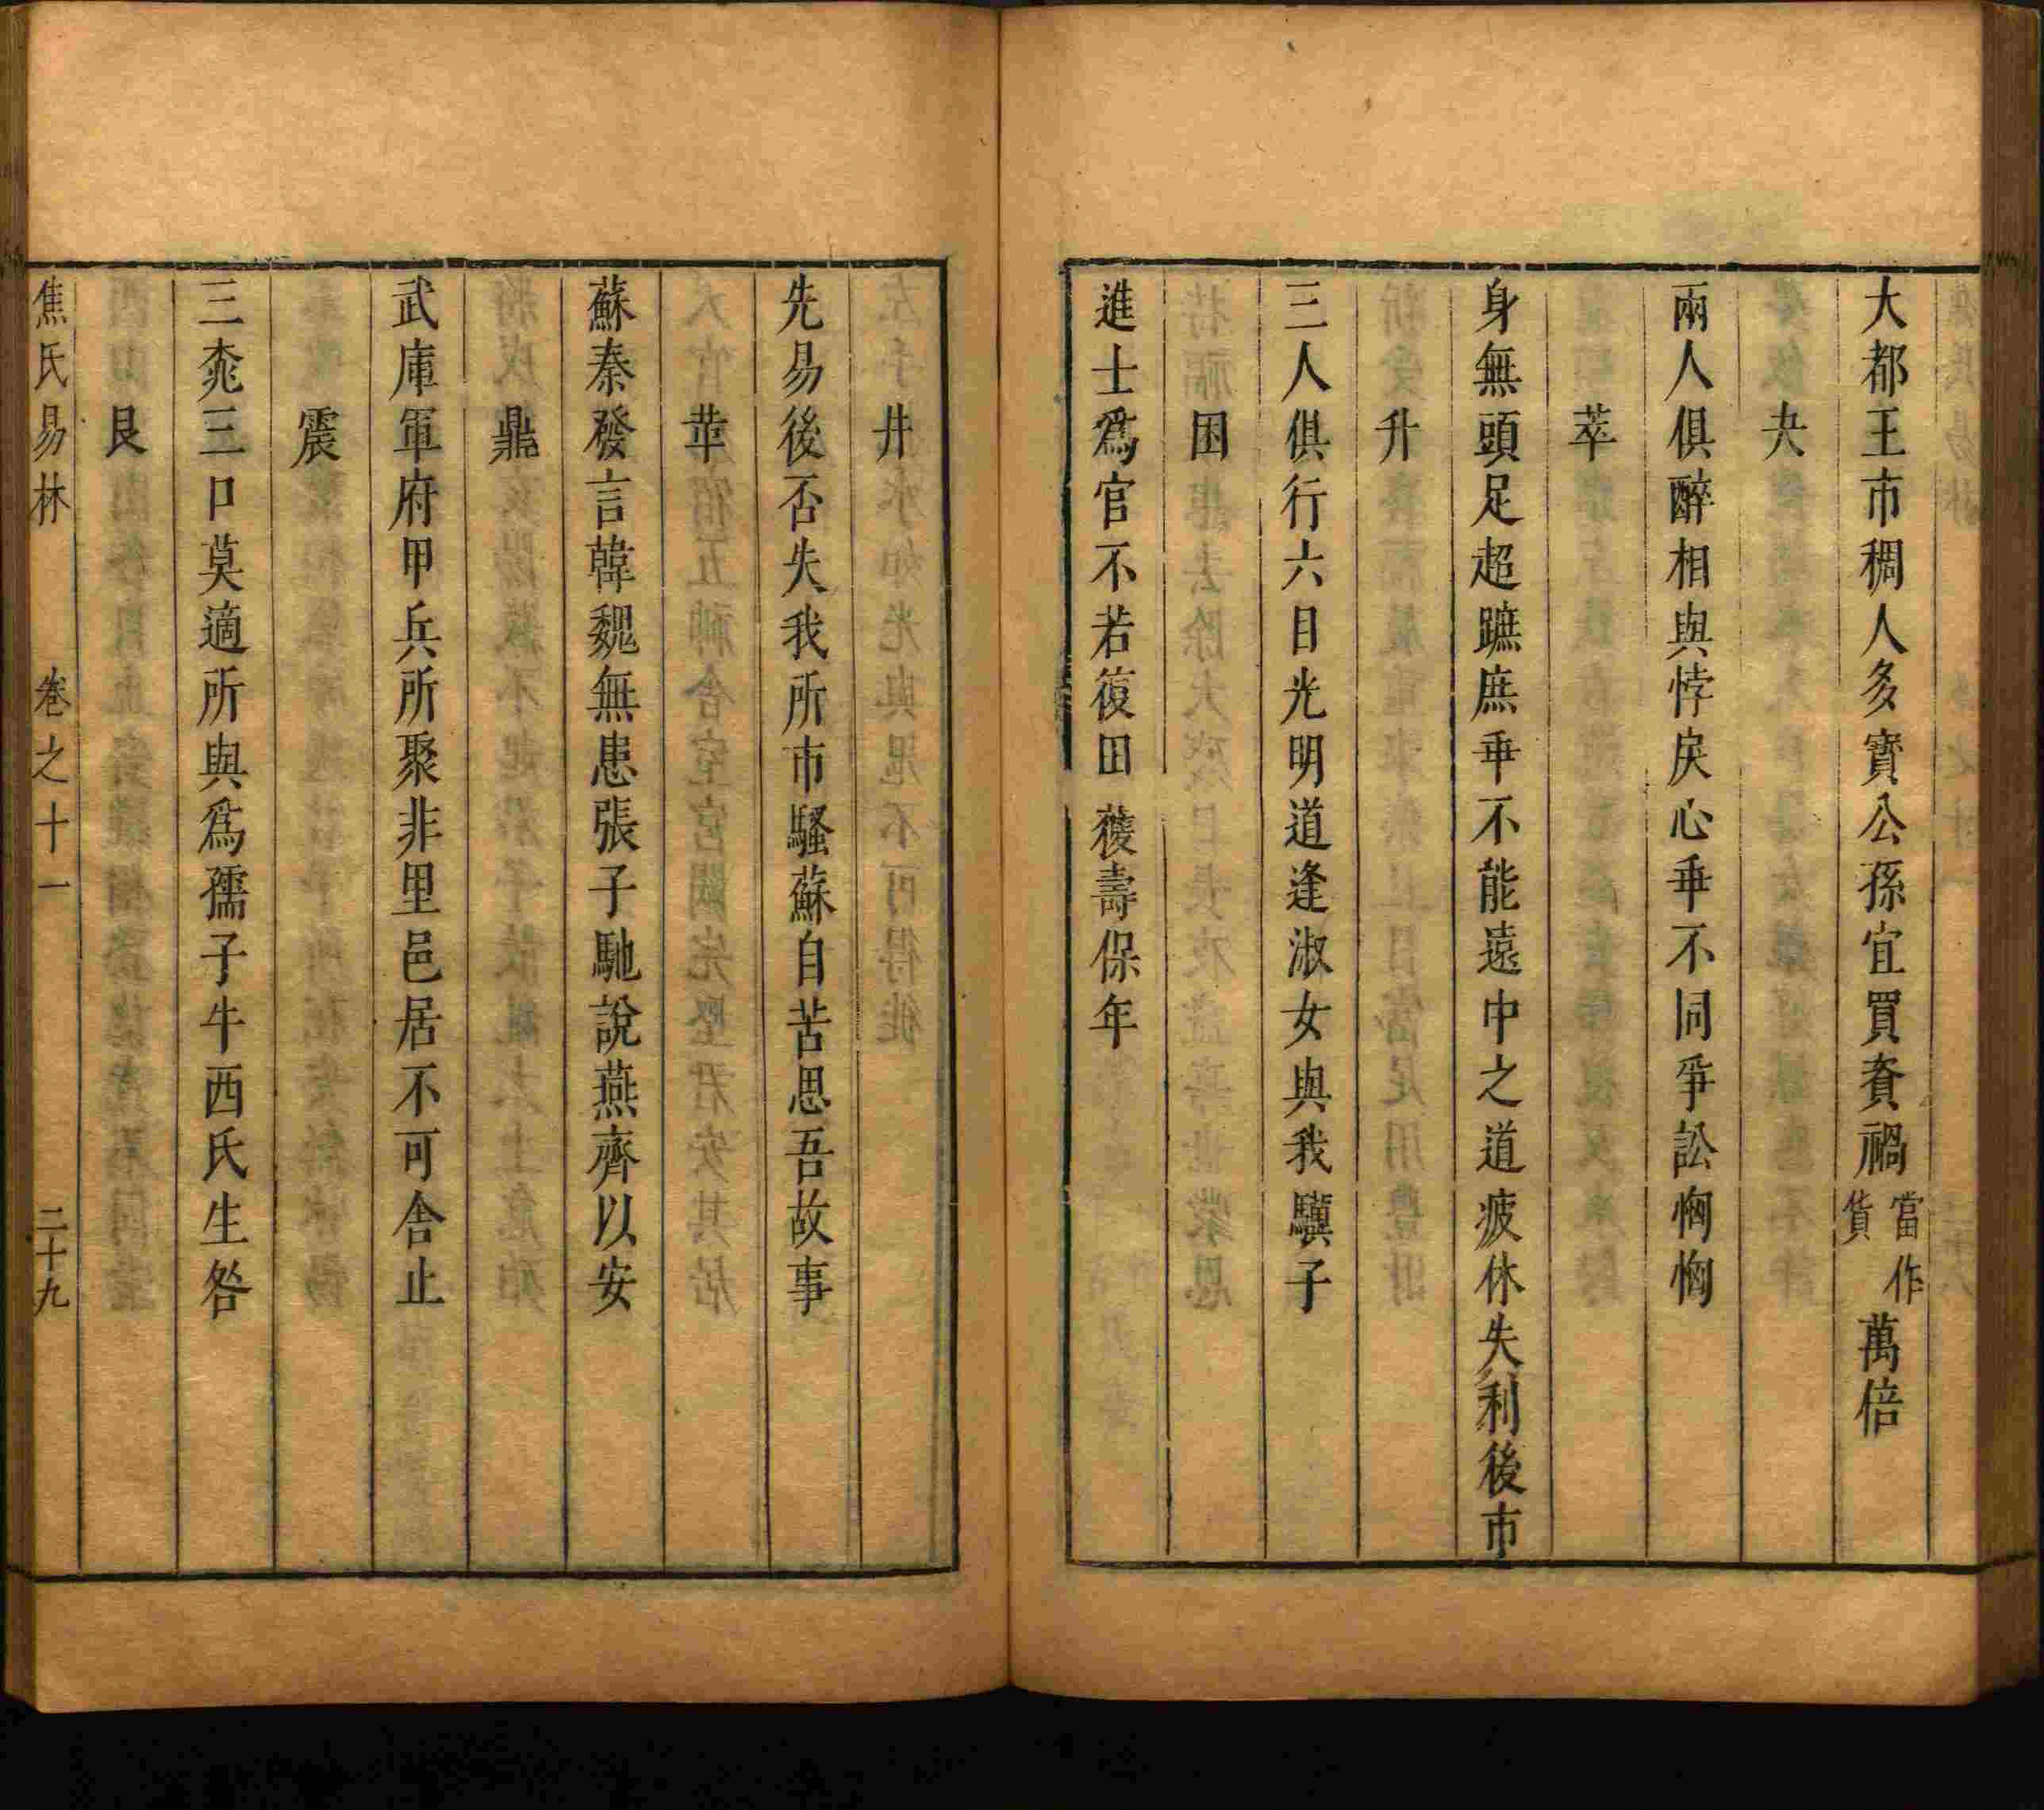 大都王市稠人多寳公孫宜買賚禍當作貨萬倍
夬
兩人俱醉相與悖戾心乖不同爭訟恟恟
萃
身無頭足超蹠庶乖不能遠中之道疲休失利後市
升
三人俱行六目光明道逢淑女與我驥子
困
進士爲官不若復田獲壽保年
井
先易後否失我所市騷蘇自苦思吾故事
革
蘇秦發言韓魏無患張子馳說燕齊以安
鼎
武庫軍府甲兵所聚非里邑居不可舍止
震
三㶴三口莫適所與爲孺子牛西氏生咎
艮
焦氏易林　卷之十一　二十九